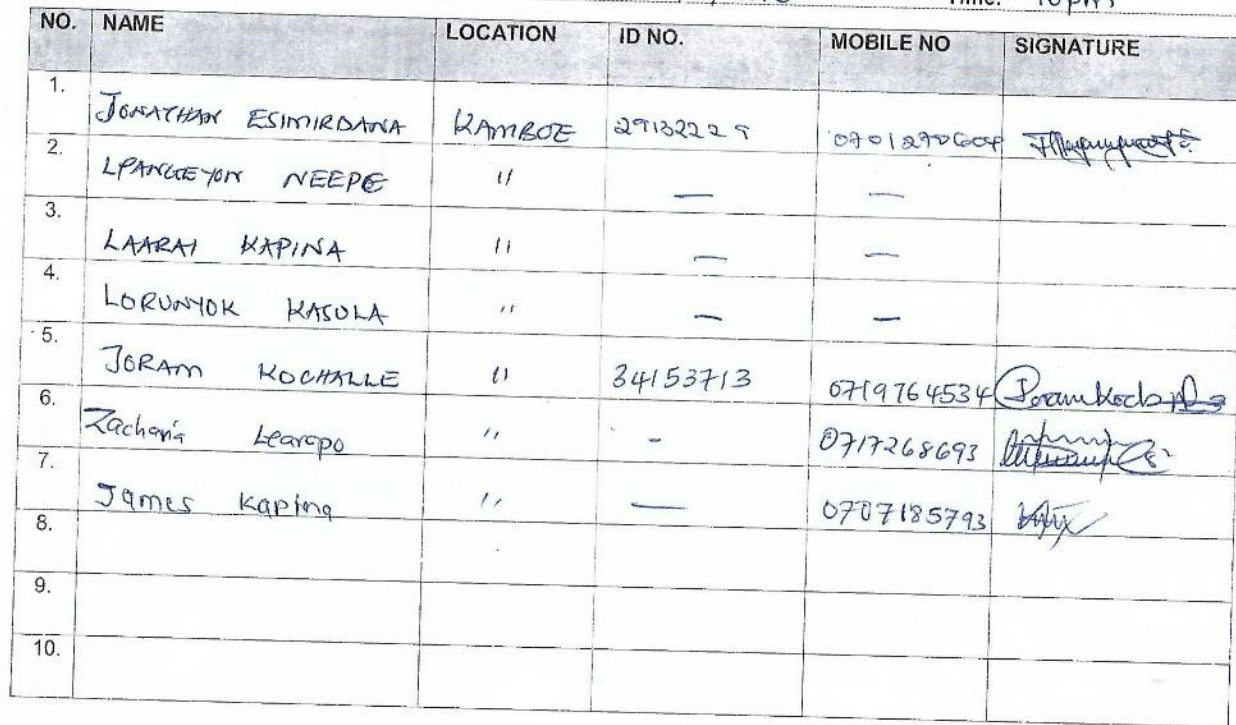 Time: 10pm
NO. NAME LOCATION ID NO. MOBILE NO SIGNATURE
1. JONATHAN ESIMIRDANA KAMBOE 29132229
2. LPANGEYON NEEPE " — —
3. LAARAI KAPINA " — —
4. LORUNYOK KASULA " — —
5. JORAM KOCHALLE " 34153713 0719764534
6. Zacharia Learapo " - 0717268693
7. James Kapina " — 0707185793
8.
9.
10.